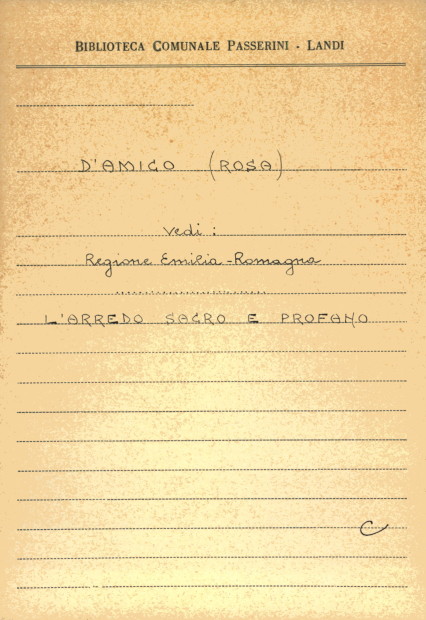 BIBLIOTECA COMUNALE PASSERINI - LANDI
D'AMICO (ROSA)
Vedi :
Regione Emilia-Romagna
L'ARREDO SACRO E PROFANO
C